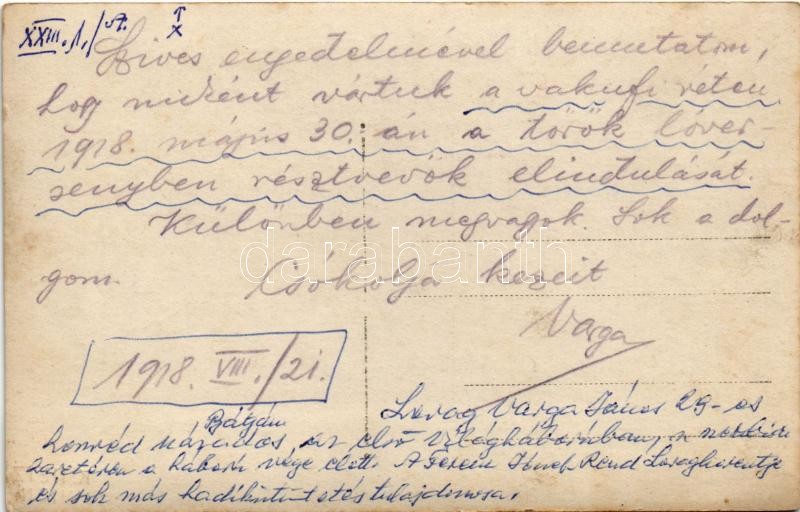 XXIII. 1./
x
Szives engedelmével bemutatom,
hogy miként vártuk a vakufi réten
1918. május 30.-án a török lóver-
senyben résztvevők elindulását.
Különben megvagok. Sok a dol-
gom. Csókolja kezeit
Varga
darabanth
1918. VIII./21.
Lovag Varga János 29-es
honvéd százados, az első világháborúban, a
a háború vége előtt. A Ferenc József Rend Lovagkeresztje
és sok más hadikitüntetés tulajdonosa.